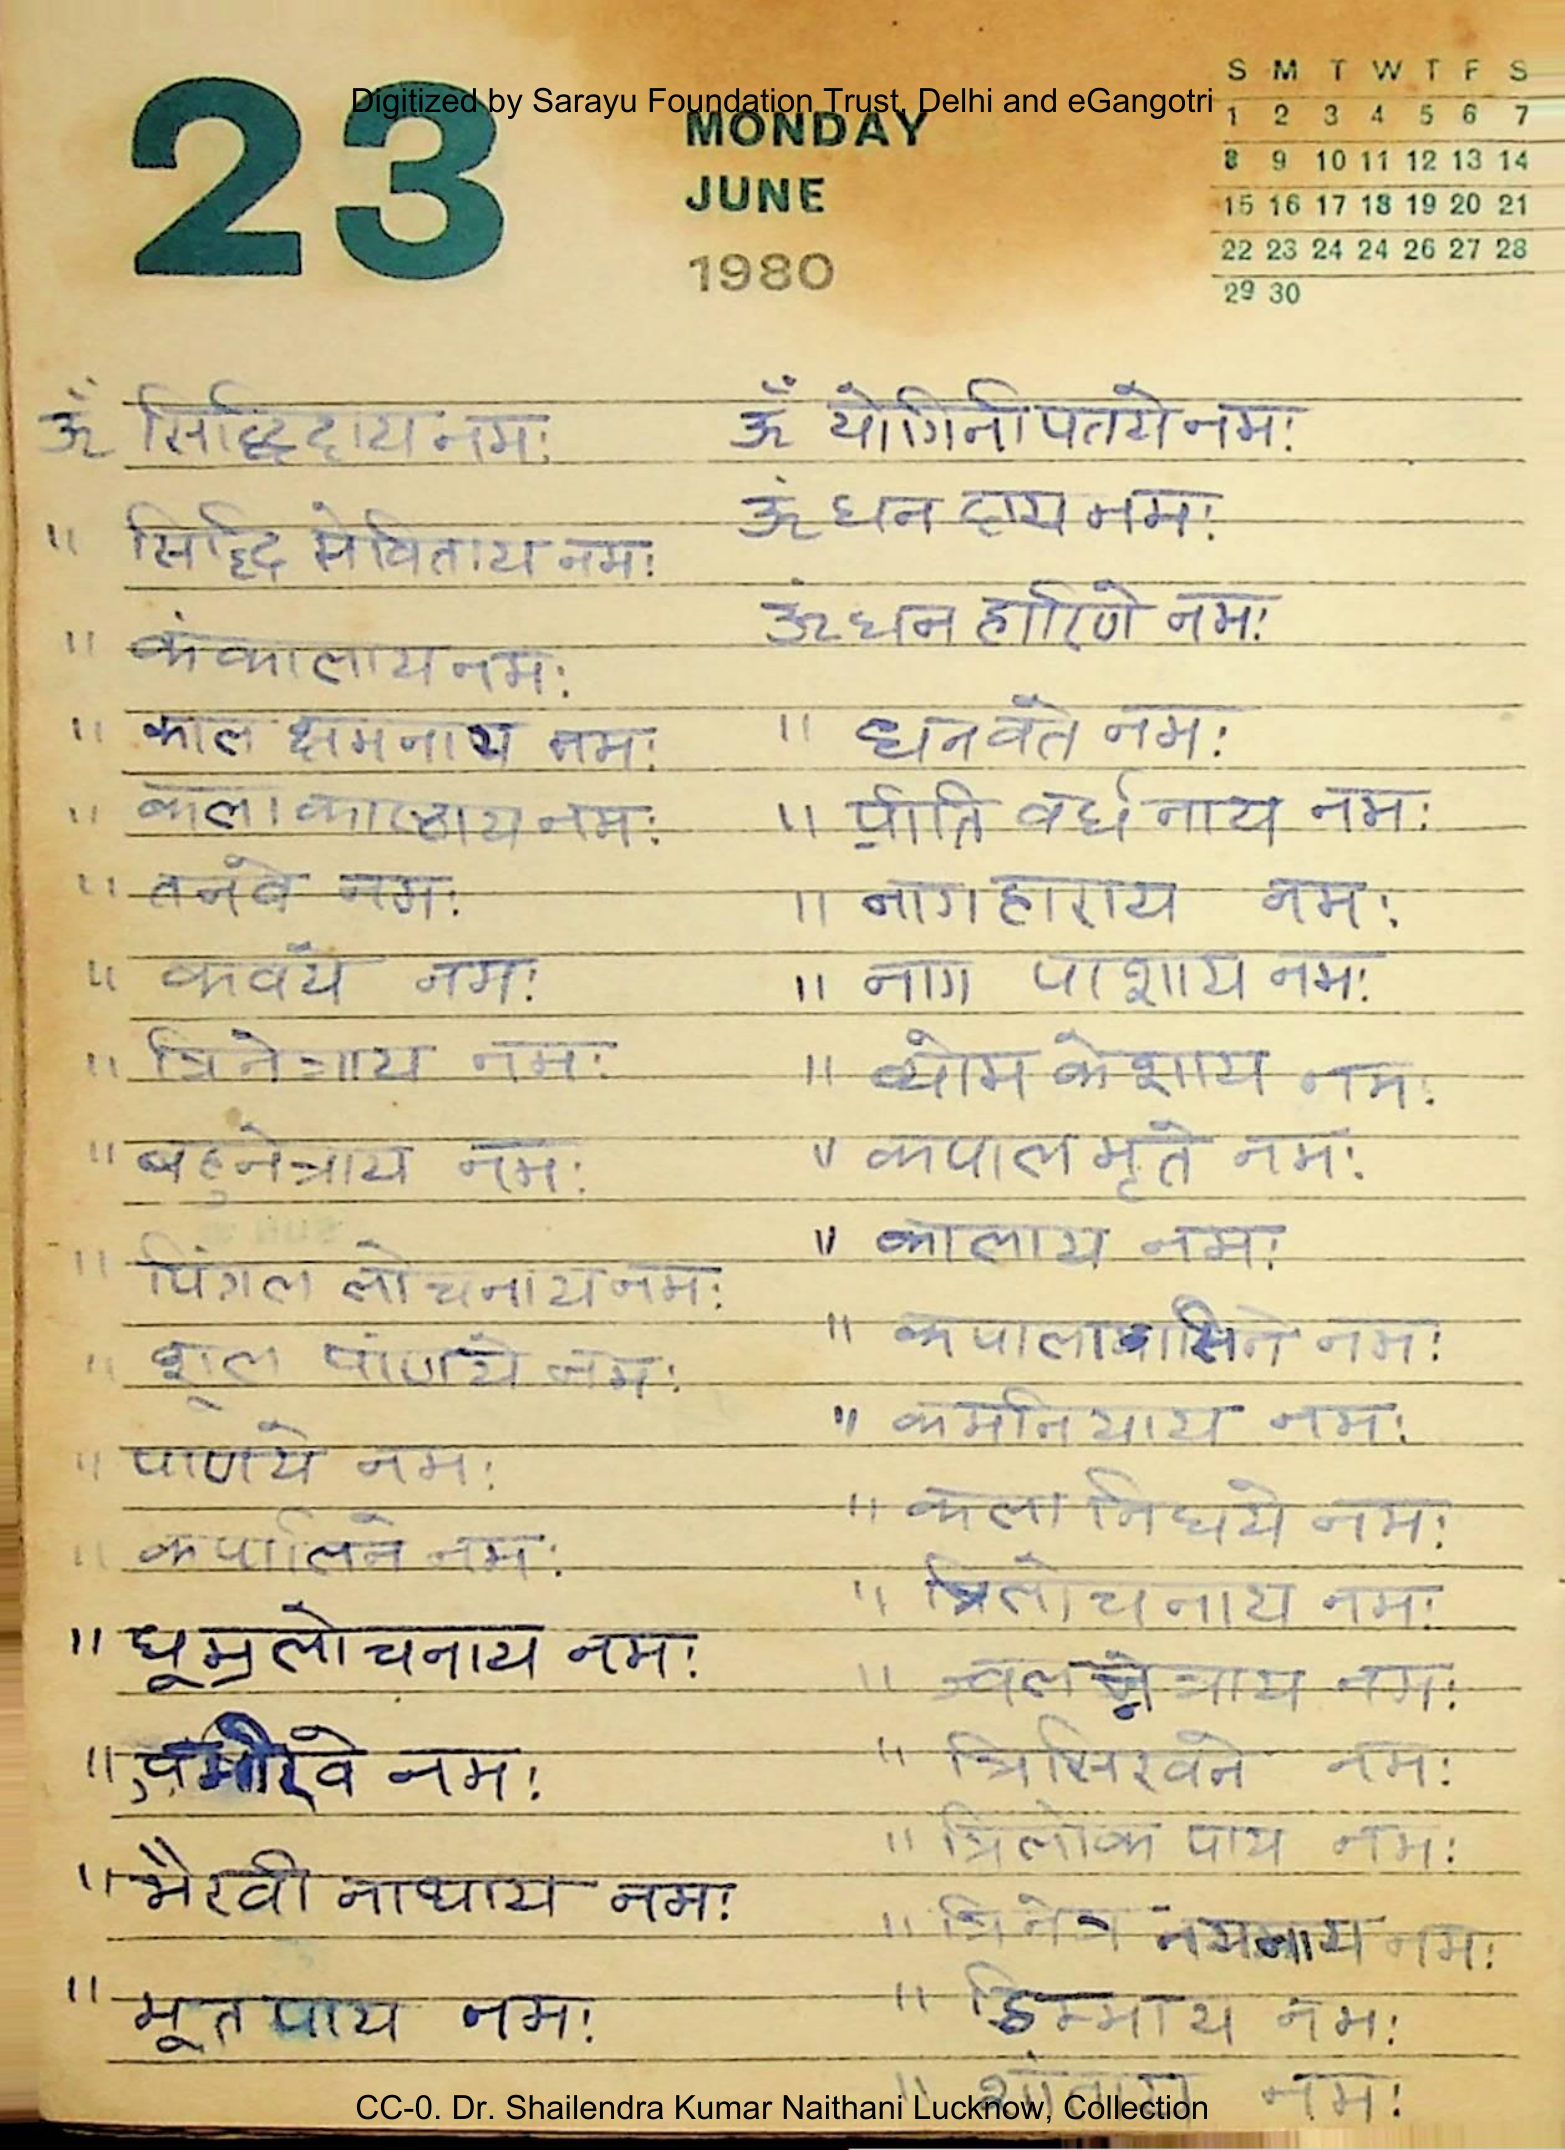 Digitized by Sarayu Foundation Trust, Delhi and eGangotri
23
MONDAY
JUNE
1980
S M T W T F S
1 2 3 4 5 6 7
8 9 10 11 12 13 14
15 16 17 18 19 20 21
22 23 24 24 26 27 28
29 30
ॐ सिद्धिदाय नमः
" सिद्धि सेविताय नमः
" कंकालाय नमः
" काल क्षमनाय नमः
" कला काष्ठाय नमः
" तनवे नमः
" कवये नमः
" त्रिनेत्राय नमः
" बहुनेत्राय नमः
" पिंगल लोचनाय नमः
" शूल पाणये नमः
" पाणये नमः
" कपालिने नमः
" धूम्रलोचनाय नमः
" नमः
" भैरवी नाथाय नमः
" भूतपाय नमः
ॐ योगिनीपतये नमः
ॐ धन दाय नमः
ॐ धन हारिणे नमः
" धनवते नमः
" प्रीति वर्धनाय नमः
" नागहाराय नमः
" नाग पाशाय नमः
" व्योम केशाय नमः
" कपालभृते नमः
" कालाय नमः
" नमः
" कमनियाय नमः
" कला निधये नमः
" त्रिलोचनाय नमः
" ज्वलन्नेत्राय नमः
" त्रिसिखने नमः
" त्रिलोक पाय नमः
" त्रिनेत्र नयनाय नमः
" डिम्भाय नमः
" शांताय नमः
CC-0. Dr. Shailendra Kumar Naithani Lucknow, Collection